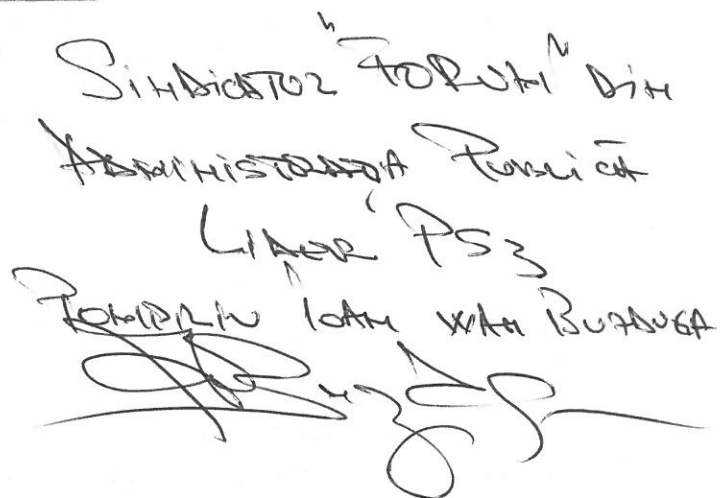 Sindicatul "FORUM" din
Administrația Publică
Lider PS3
Pompiliu Ioan Wan Buzduga